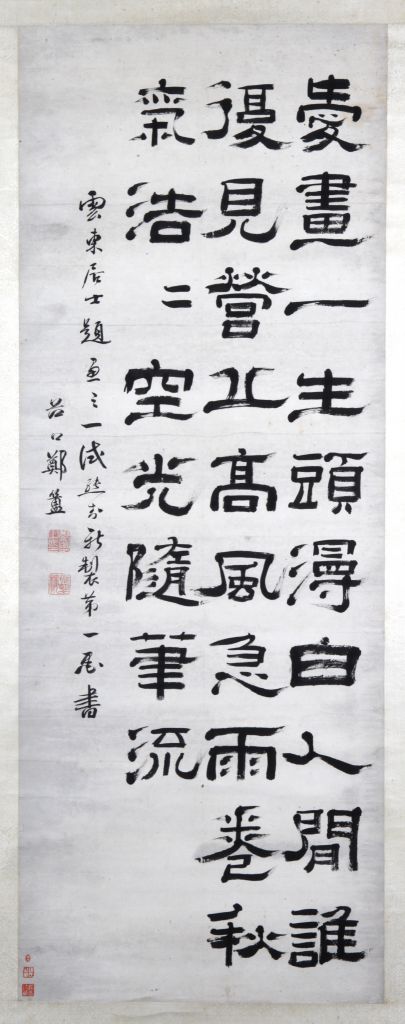 愛畫一生頭淂白人閒誰
復見營丘高風急雨卷秋
氣浩〻空光隨筆流
雲東居士題画之一 新製第一 書
谷口鄭簠